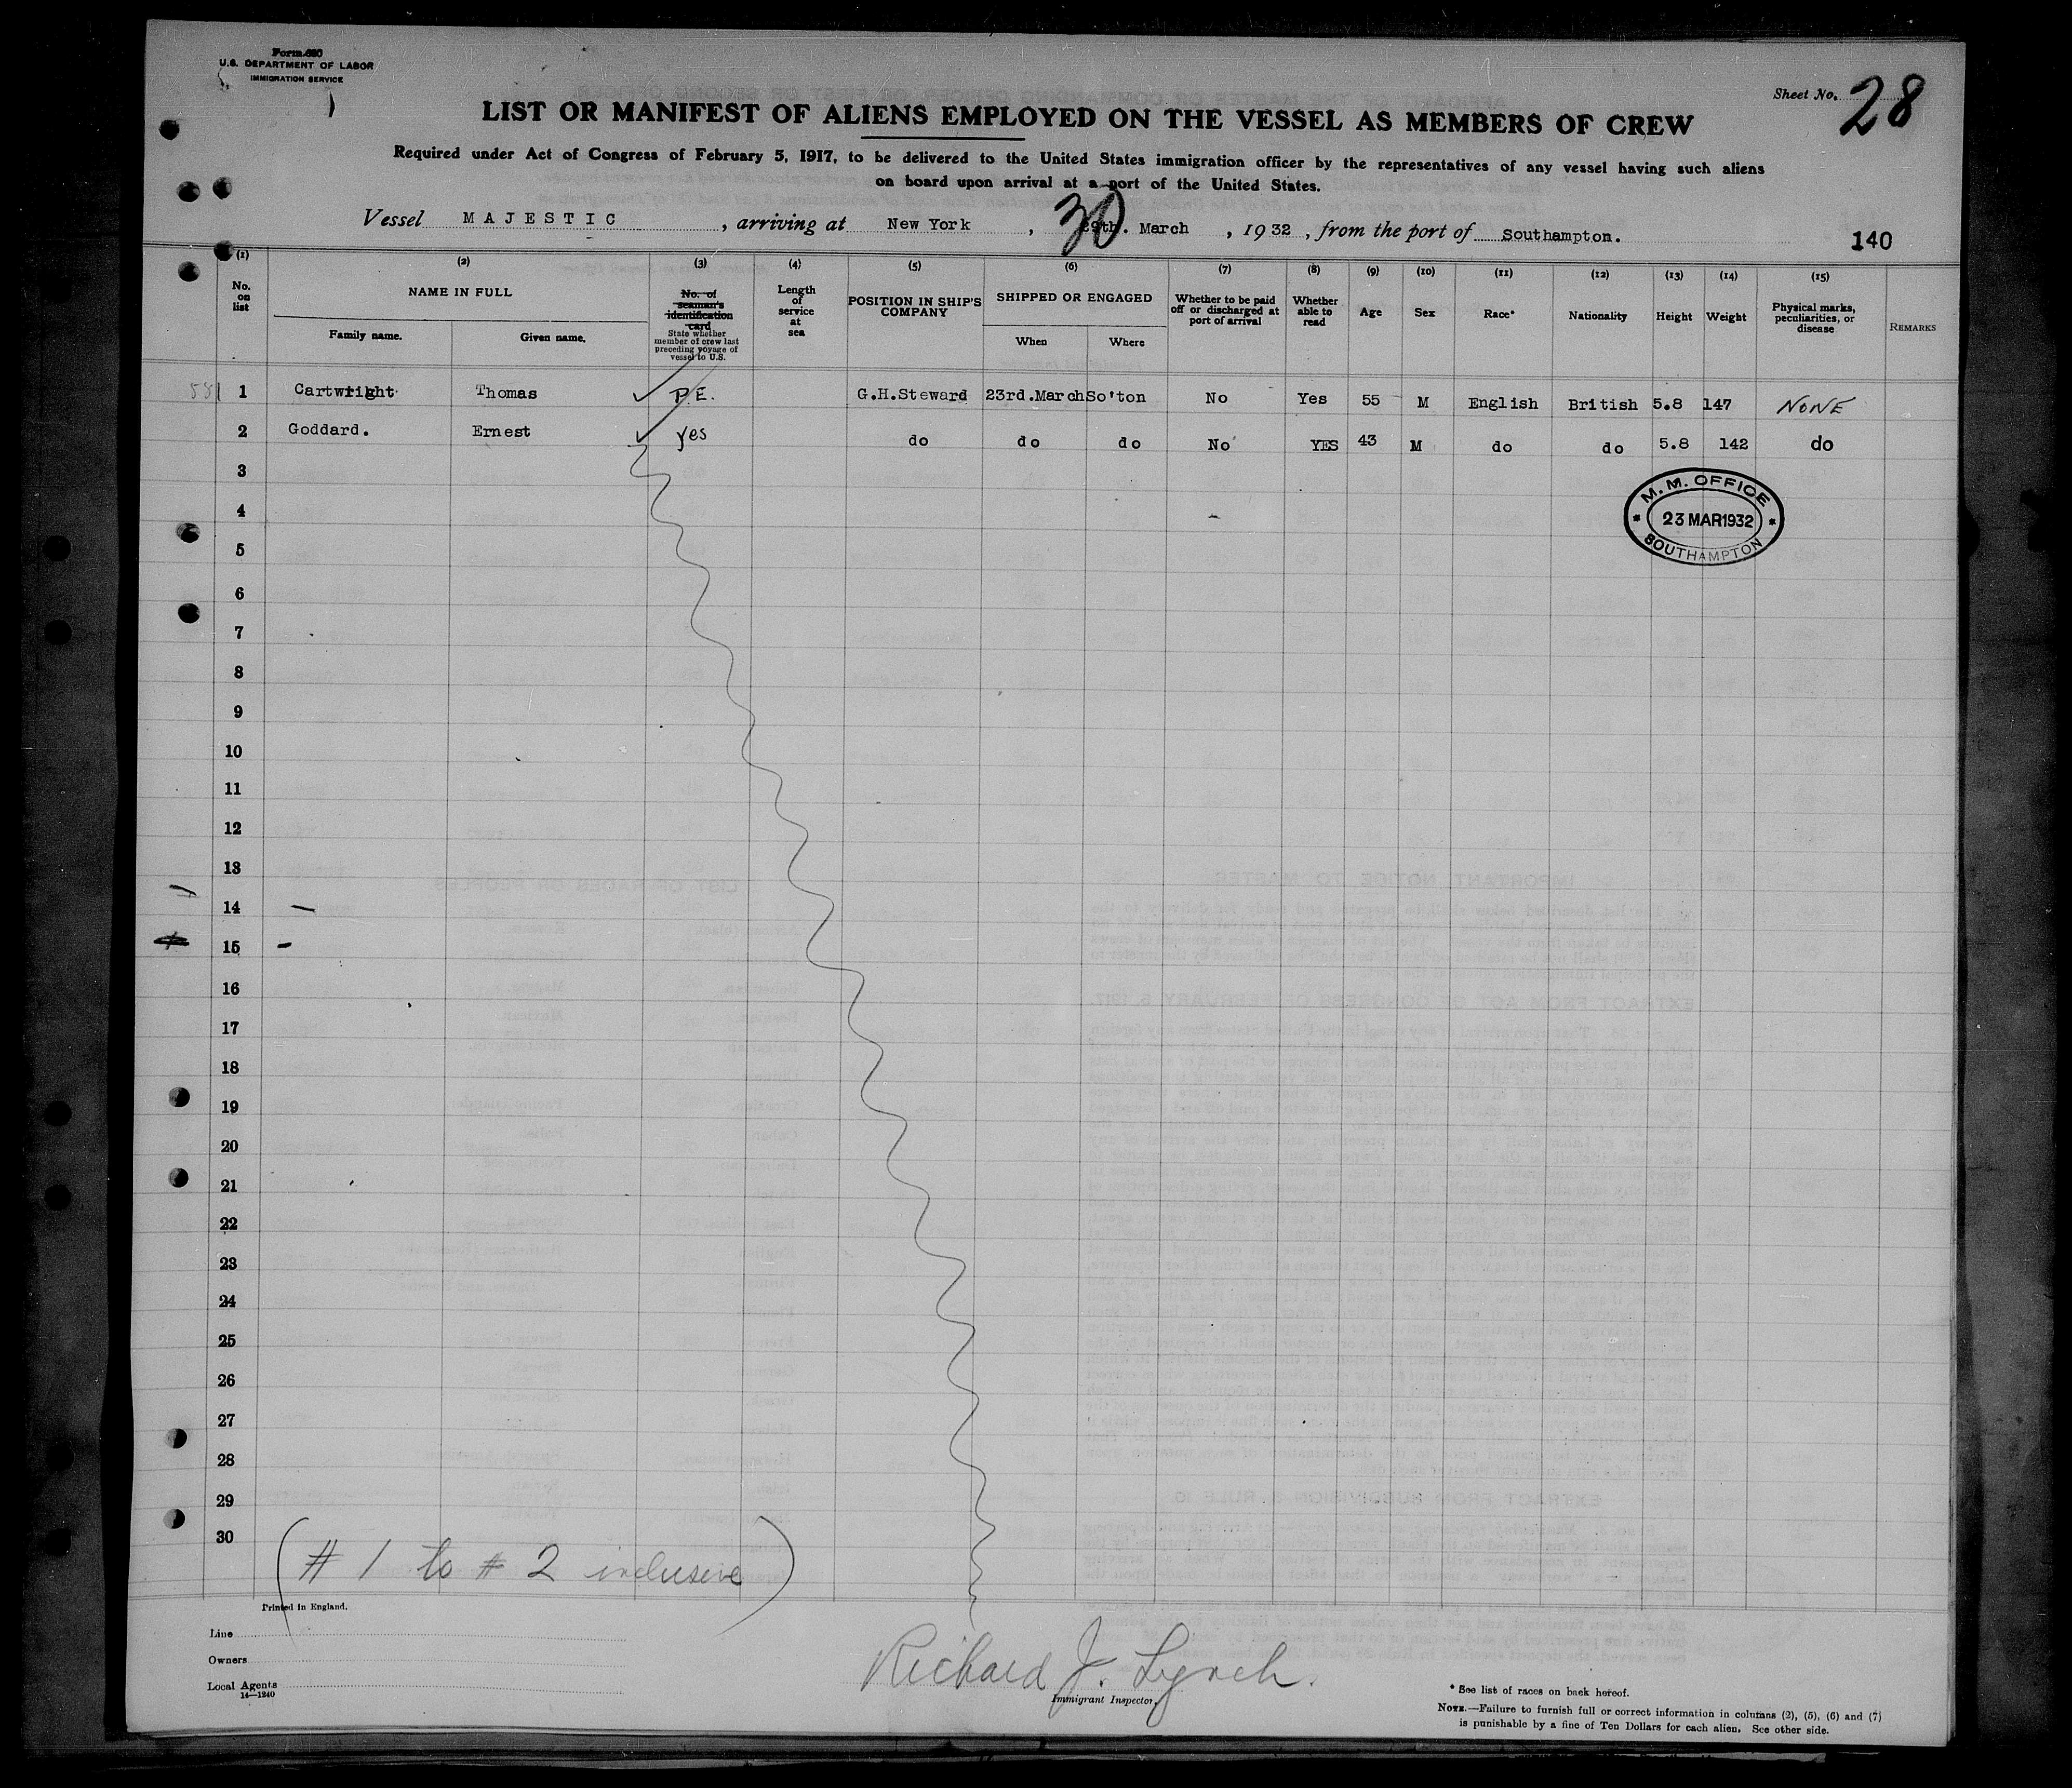 Form 680
U.S. DEPARTMENT OF LABOR
IMMIGRATION SERVICE
Sheet No. 28
LIST OR MANIFEST OF ALIENS EMPLOYED ON THE VESSEL AS MEMBERS OF CREW
Required under Act of Congress of February 5, 1917, to be delivered to the United States immigration officer by the representatives of any vessel having such aliens
on board upon arrival at a port of the United States.
Vessel MAJESTIC, arriving at New York, 30 29th. March, 1932, from the port of Southampton.
140
(1) (2) (3) (4) (5) (6) (7) (8) (9) (10) (11) (12) (13) (14) (15)
No. on list
NAME IN FULL
Family name. Given name.
No. of seaman's identification card
State whether member of crew last preceding voyage of vessel to U.S.
Length of service at sea
POSITION IN SHIP'S COMPANY
SHIPPED OR ENGAGED
When Where
Whether to be paid off or discharged at port of arrival
Whether able to read
Age
Sex
Race*
Nationality
Height
Weight
Physical marks, peculiarities, or disease
REMARKS
1 Cartwright Thomas P.E. G.H.Steward 23rd.March So'ton No Yes 55 M English British 5.8 147 NONE
2 Goddard. Ernest yes do do do No YES 43 M do do 5.8 142 do
M. M. OFFICE
23 MAR 1932
SOUTHAMPTON
3
4
5
6
7
8
9
10
11
12
13
14
15
16
17
18
19
20
21
22
23
24
25
26
27
28
29
30
(# 1 to # 2 inclusive)
Printed in England.
Line
Owners
Local Agents
14—1240
Richard J. Lynch.
Immigrant Inspector.
* See list of races on back hereof.
NOTE.—Failure to furnish full or correct information in columns (2), (5), (6) and (7)
is punishable by a fine of Ten Dollars for each alien. See other side.